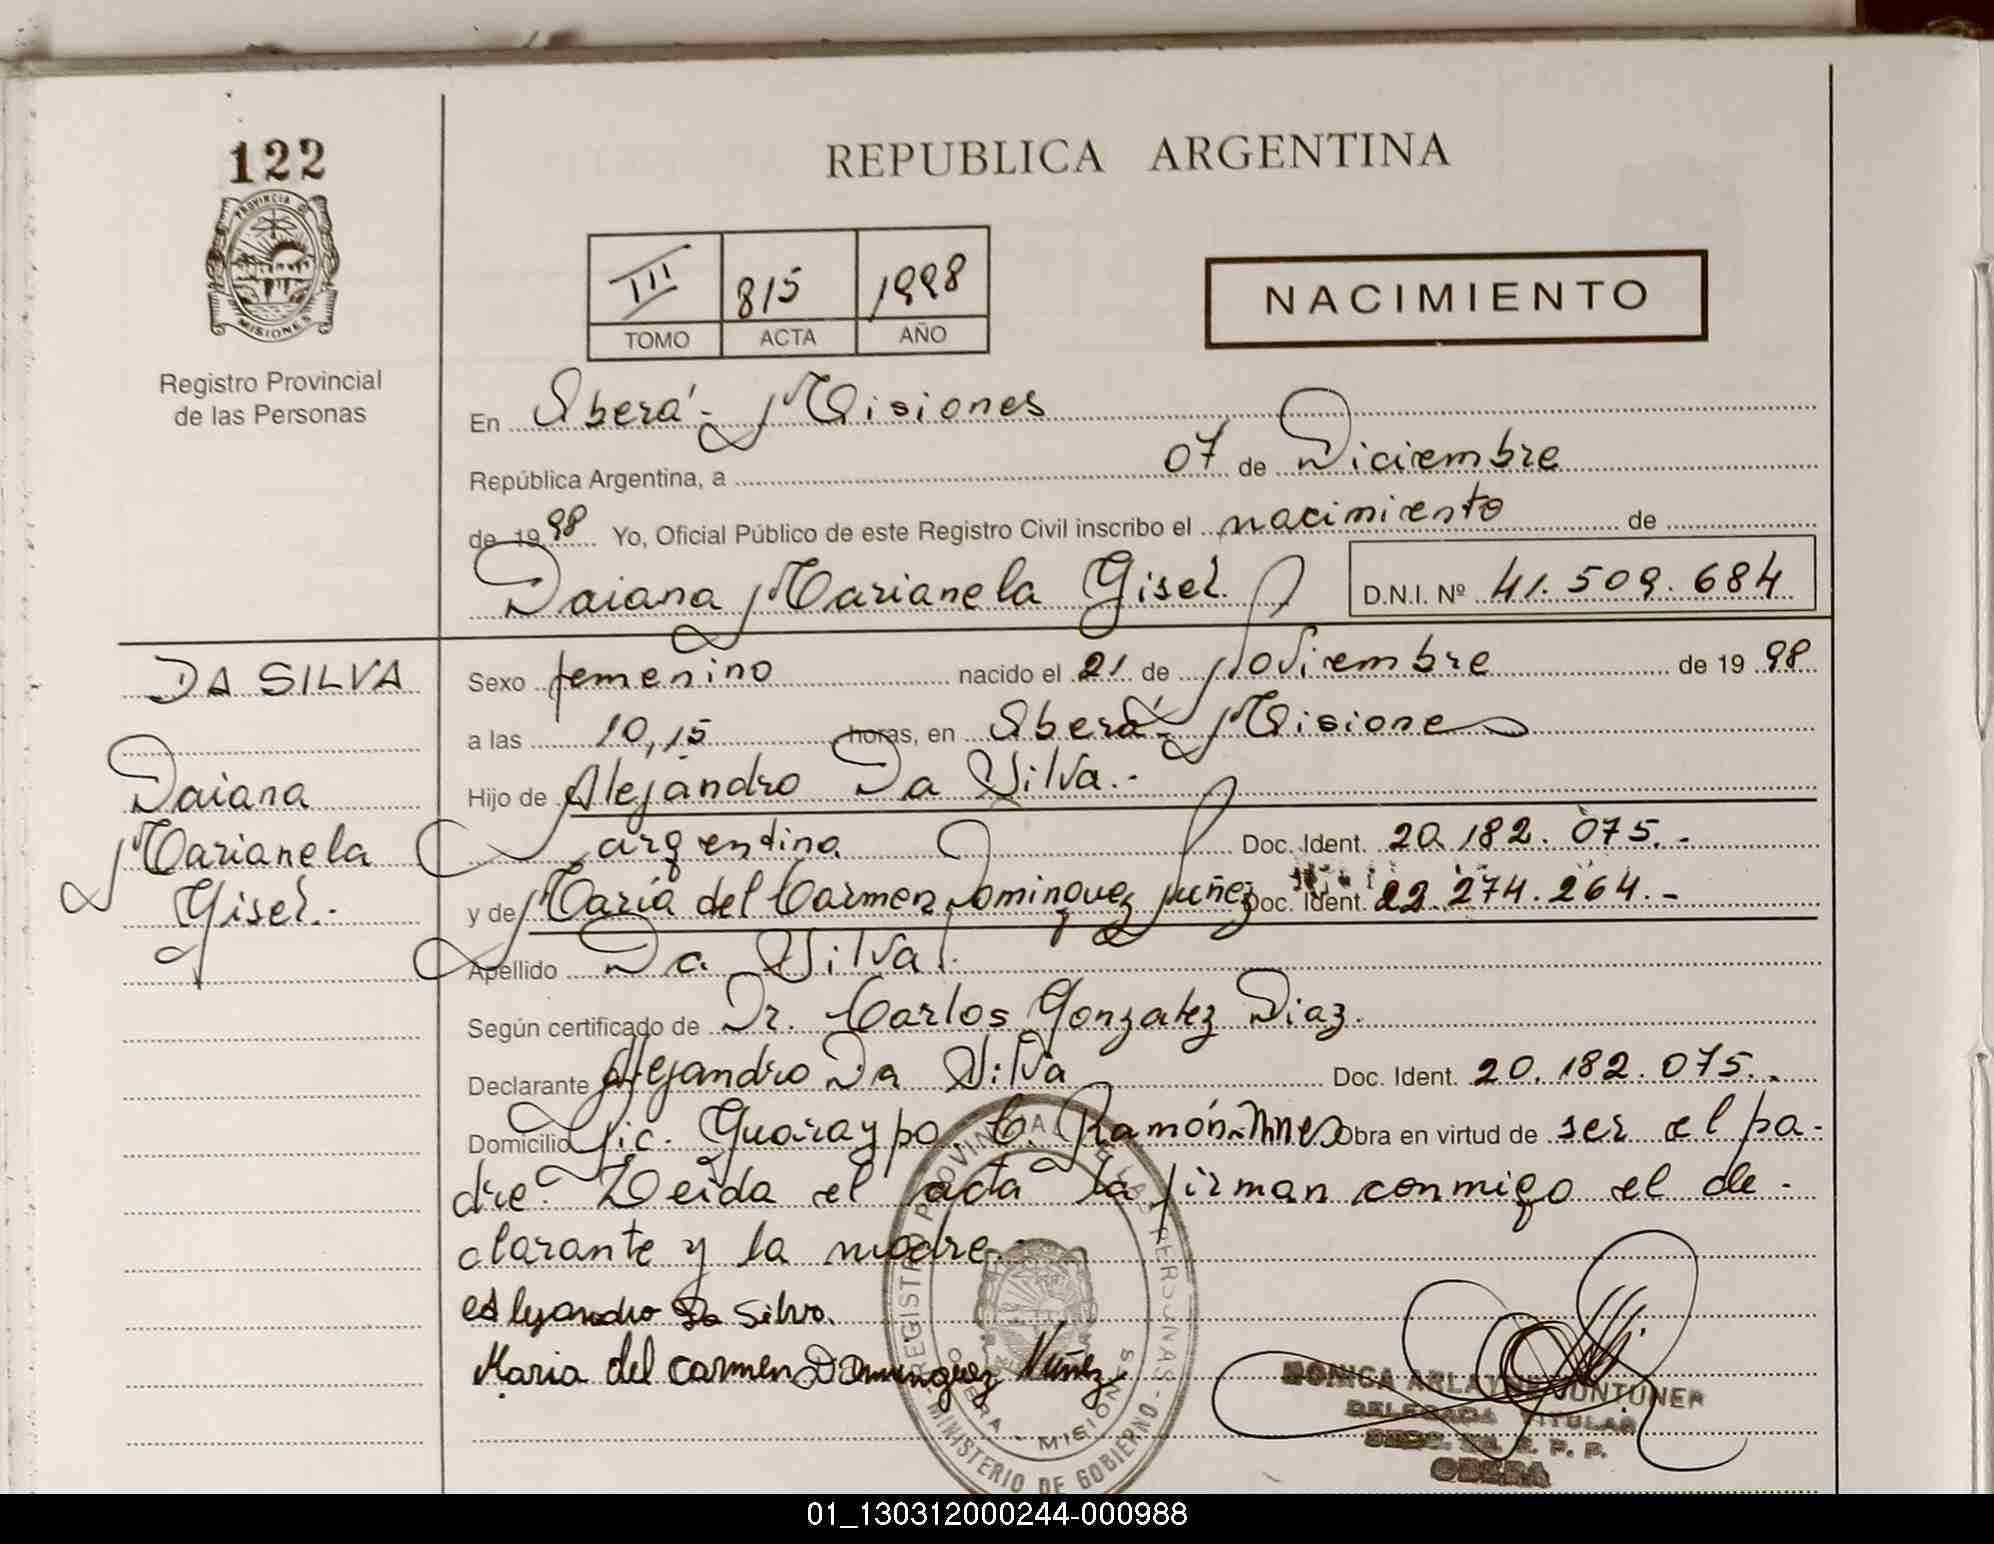 122
PROVINCIA D
MISIONES
Registro Provincial
de las Personas
REPUBLICA ARGENTINA
III 815 1998
TOMO ACTA AÑO
NACIMIENTO
En Oberá - Misiones
República Argentina, a 07 de Diciembre
de 1998 Yo, Oficial Público de este Registro Civil inscribo el nacimiento de
Daiana Marianela Gisel D.N.I. Nº 41.509.684
DA SILVA
Daiana
Marianela
Gisel.-
Sexo femenino nacido el 21 de Noviembre de 1998
a las 10,15 horas, en Oberá - Misiones
Hijo de Alejandro Da Silva.-
argentina Doc. Ident. 20.182.075.-
y de María del Carmen Dominguez Nuñez Doc. Ident. 22.274.264.-
Apellido Da Silva.
Según certificado de Dr. Carlos Gonzalez Diaz.
Declarante Alejandro Da Silva Doc. Ident. 20.182.075.-
Domicilio Pic. Guaraypo. C. Ramón-Mnes Obra en virtud de ser el pa-
dre. Leida el acta la firman conmigo el de-
clarante y la madre.-
Alejandro Da Silva.
Maria del Carmen Dominguez Nuñez
REGISTRO PROVINCIAL DE LAS PERSONAS - MINISTERIO DE GOBIERNO -
OBERA - MISIONES
MONICA ARLAYNE JUNTUNER
DELEGADA TITULAR
R. P. P.
OBERA
01_130312000244-000988